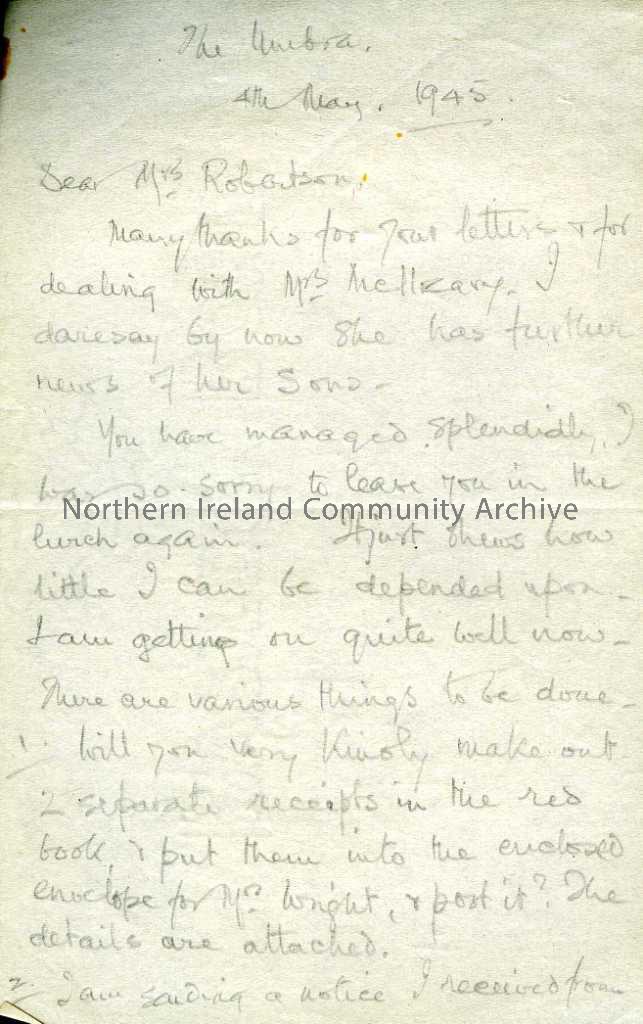 The Umbra.
4th May. 1945.
Dear Mrs Robertson,
Many thanks for your letters & for
dealing with Mrs McIlzary. I
daresay by now she has further
news of her Sons -
You have managed splendidly, I
was so sorry to leave you in the
Northern Ireland Community Archive
lurch again. It just shews how
little I can be depended upon -
I am getting on quite well now -
There are various things to be done -
1. Will you very kindly make out
2 separate receipts in the red
book, & put them into the enclosed
envelope for Mrs Wright, & post it? The
details are attached.
2. I am sending a notice I received from